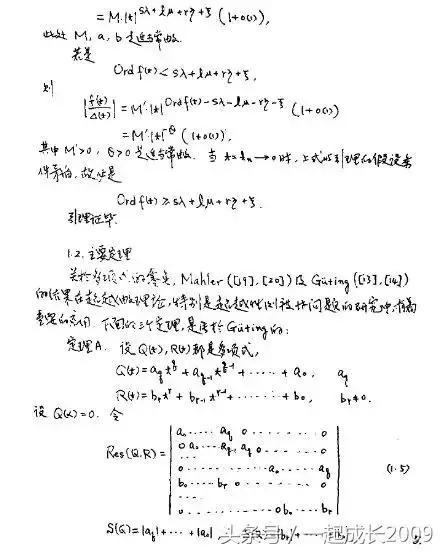 = M·|t|^{sλ+lμ+rη+ξ} (1+o(1)),
此处 M, a, b 是适当常数.
若是
Ord f(t) < sλ+lμ+rη+ξ,
则
|f(t)/Δ(t)| = M'·|t|^{Ord f(t)-sλ-lμ-rη-ξ} (1+o(1))
= M'·|t|^{-θ} (1+o(1)),
其中 M'>0, θ>0 是适当常数. 当 t = tₙ → 0 时, 上式与引理的假设条
件矛盾, 故必是
Ord f(t) ≥ sλ+lμ+rη+ξ.
引理证毕.
1.2. 主要定理
关于多项式的零点, Mahler ([19], [20]) 及 Güting ([13], [14])
的结果在超越数理论, 特别是超越性判别法问题的研究中, 有着
重要的应用. 下面的三个定理, 是属于 Güting 的:
定理A. 设 Q(x), R(x) 都是多项式,
Q(x) = a_q x^q + a_{q-1} x^{q-1} + ······ + a₀, a_q
R(x) = b_r x^r + b_{r-1} x^{r-1} + ······ + b₀, b_r ≠ 0.
设 Q(α) = 0. 令
a₀ ······ a_q 0 ············ 0
0 a₀ ······ a_{q-1} a_q 0 ······ 0
············
0 ············ a₀ ······ a_q
Res(Q,R) = b₀ ······ b_r 0 ············ 0 (1.5)
············
0 ············ 0 b₀ ··· b_r
S(Q) = |a_q| + ··· + |a₀|
头条号 / 一起成长2009